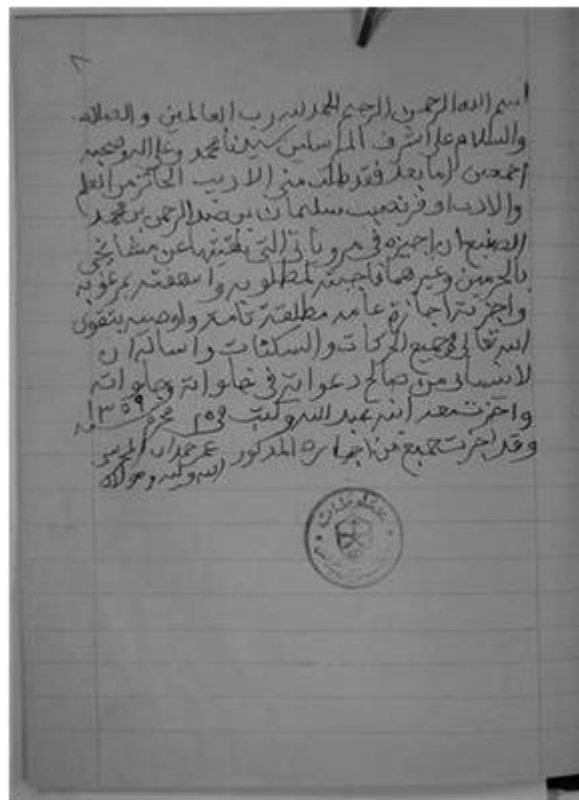 بسم الله الرحمن الرحيم الحمد لله رب العالمين والصلاة
والسلام على اشرف المرسلين سيدنا محمد وعلى اله وصحبه
اجمعين اما بعد فقد طلب مني الاديب الحائز من العلم
والادب اوفر نصيب سليمان بن عبد الرحمن بن محمد
الصنيع ان اجيزه في مروياتي التي تلقيتها عن مشايخي
بالحرمين وغيرهما فاجبته لمطلوبه واسعفته بمرغوبه
واجزته اجازة عامه مطلقة تامة واوصيه بتقوى
الله تعالى في جميع الحركات والسكنات واساله ان
لا ينساني من صالح دعواته في خلواته وجلواته
واجزت بعد ابنه عبد الله وكتب في محرم سنة ١٣٥٩
وقد اجزت جميع من اجازه المذكور عمر حمدان المحرسي